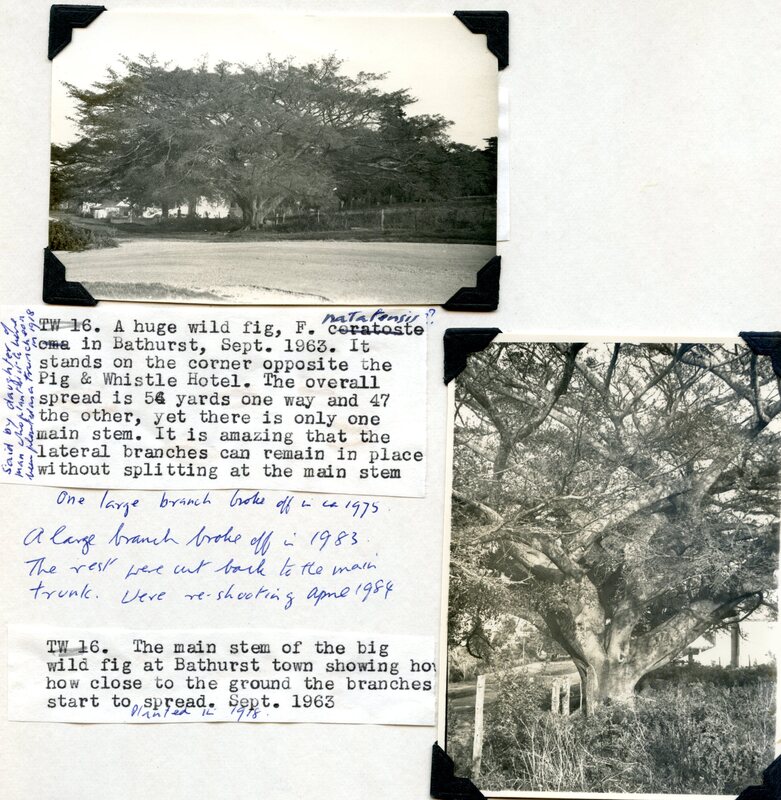 natalensis??
TW 16. A huge wild fig, F. ceratoste
oma in Bathurst, Sept. 1963. It
stands on the corner opposite the
Pig & Whistle Hotel. The overall
spread is 54 yards one way and 47
the other, yet there is only one
main stem. It is amazing that the
lateral branches can remain in place
without splitting at the main stem
Said by daughter of
man who planted it to have
been planted in 1918
One large branch broke off in ca 1975.
A large branch broke off in 1983.
The rest were cut back to the main
trunk. Were re-shooting April 1984
TW 16. The main stem of the big
wild fig at Bathurst town showing how
how close to the ground the branches
start to spread. Sept. 1963
Planted in 1918.